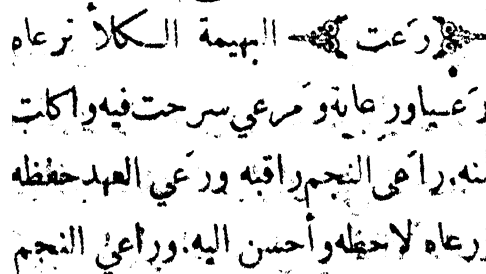 ﴿رَعت﴾ البهيمة الـكلأ ترعاه
رَعيا ورعاية ومرعى سرحت فيه واكلت
منه. راعى النجم راقبه ورَعي العهد حفظه
ورعاه لاحظه وأحسن اليه. وراعى النجم